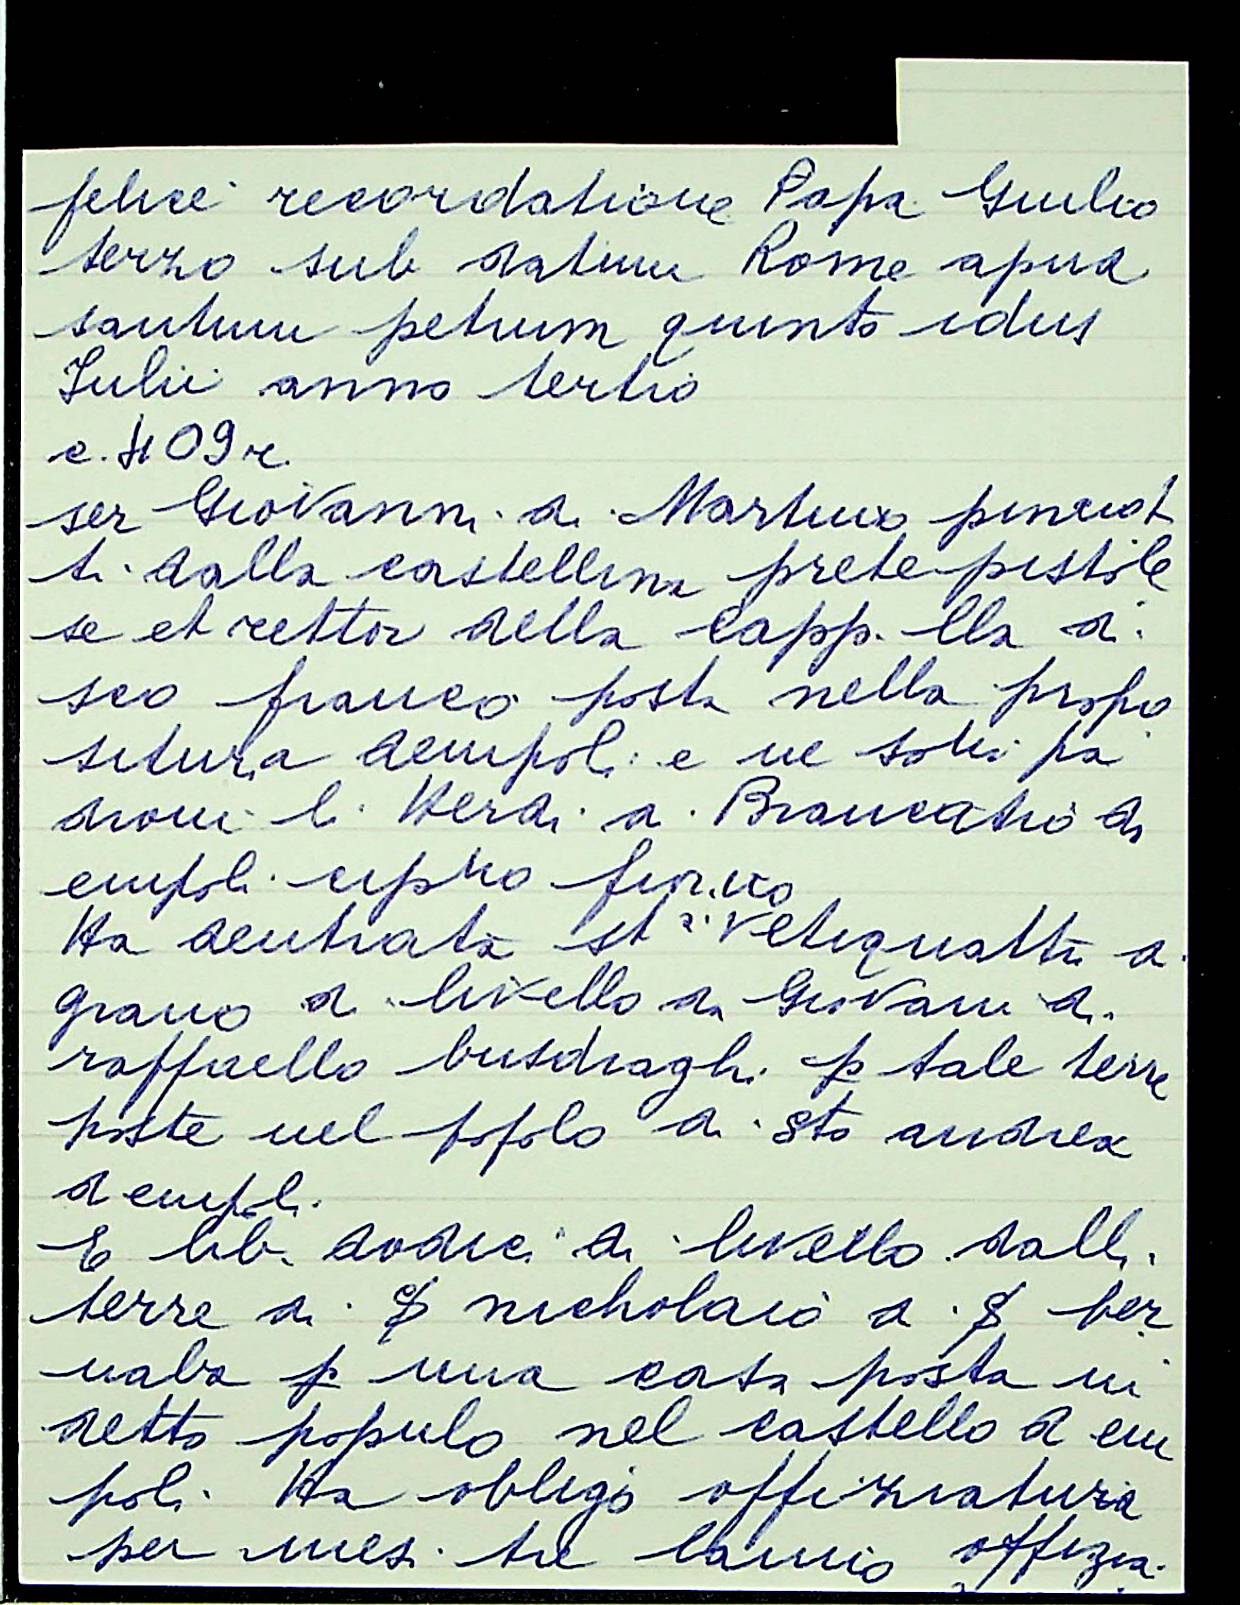 felice recordatione Papa Giulio
terzo sub datum Rome apud
santum petrum quinto idus
Iulii anno tertio
c. 409r.
ser Giovanni di Martino pinciat
ti dalla castellina prete pistole
se et rettor della capp.lla di
sco franco posta nella propo
situra dempoli e ne sono pa
droni l. Herdi di Brancatio da
empoli
Ha dentrata st.a vetiquattro di
grano di livello da Giovani di
raffaello busdraghi p tale terre
poste nel popolo di sto andrea
dempoli.
E lib. dodici di livello dalli
terre di § nicholaio di § ber
naba p una casa posta in
detto populo nel castello d em
poli. Ha obligo offiziatura
per mesi tre lanno offizia.